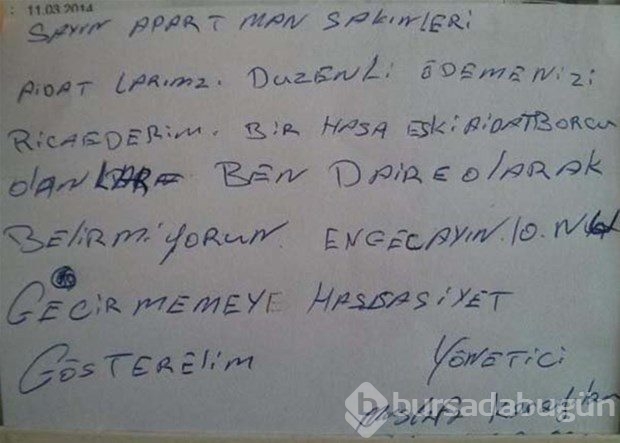 : 11.03.2014
SAYIN APART MAN SAKINLERİ
AİDAT LARIMZI DUZENLİ ÖDEMENİZİ
RİCAEDERİM. BİR HASA ESKİ AİDATBORCU
OlANLARA BEN DAİREOlARAK
BELİRMİYORUN. ENGECAYIN.10.NU
GECİRMEMEYE HASBASİYET
GÖSTERELİM YÖNETİCİ
bursadabugün